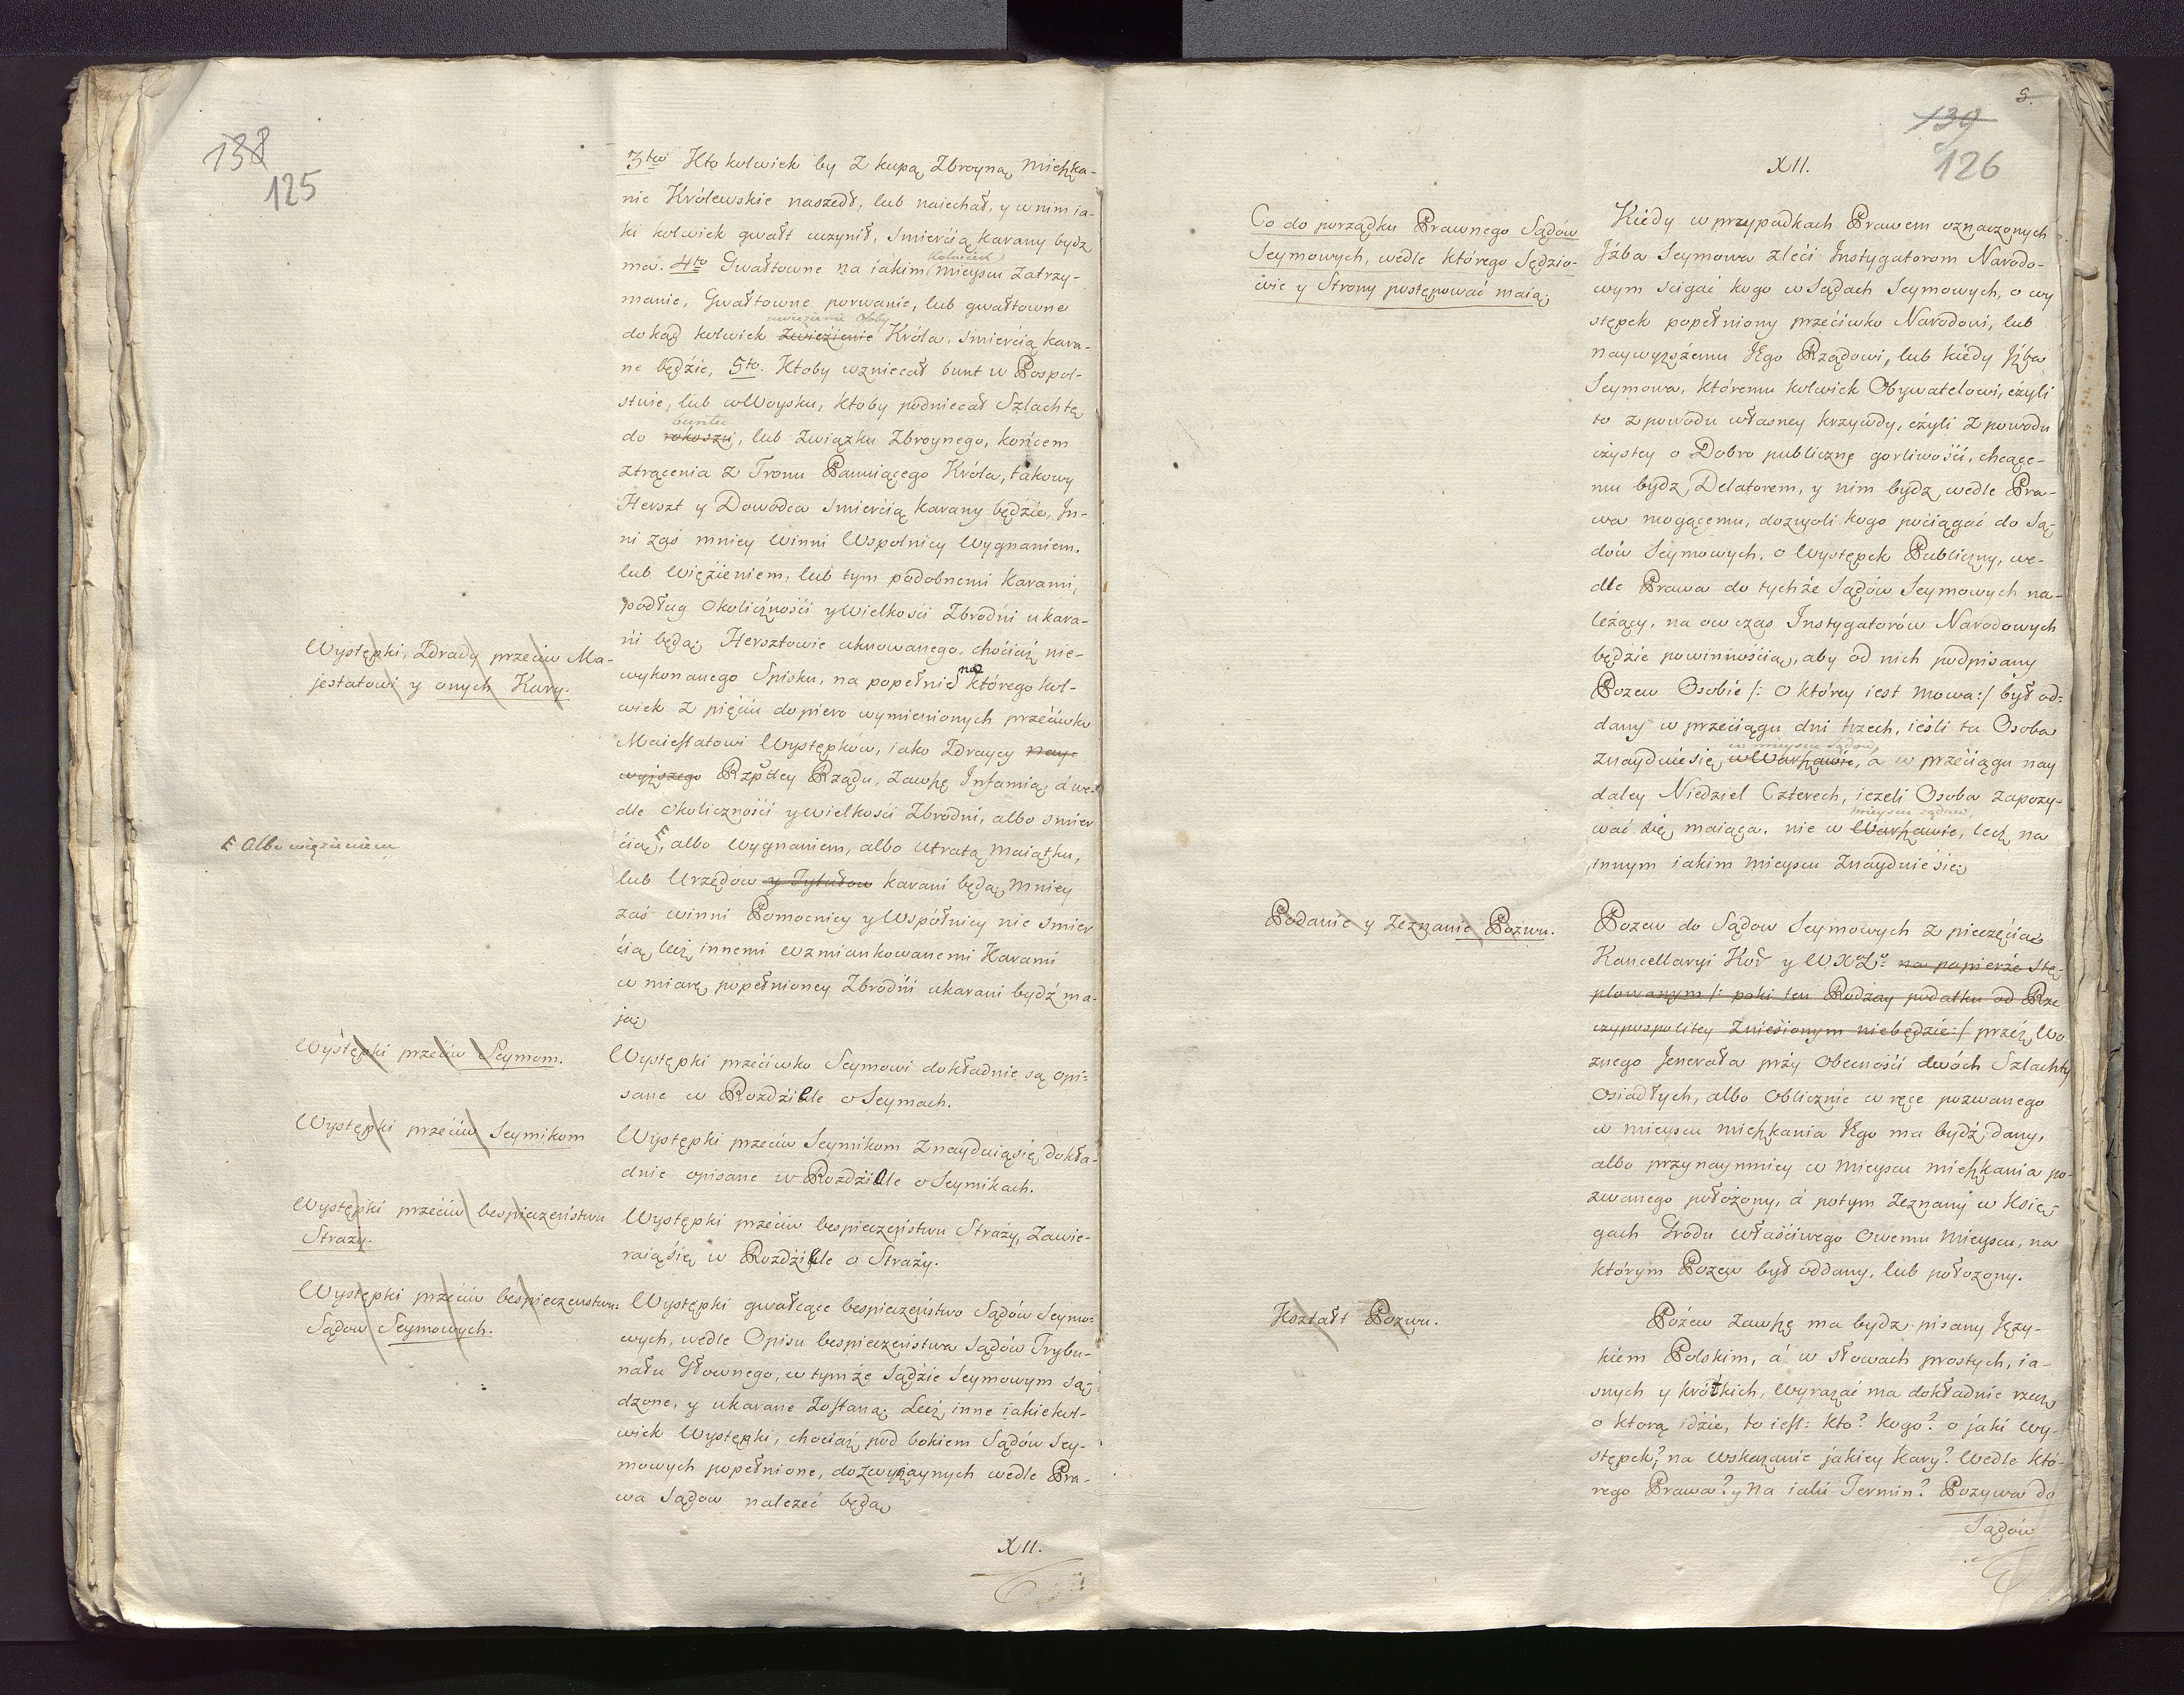 138
125
3tio Kto kolwiek by z kupą Zbroyną Mieszka-
nie Królewskie naszedł, lub naiechał, y w nim ia-
ki kolwiek gwałt uczynił, Smiercią Karany bydz
kolwiek
ma. 4to Gwałtowne na iakim mieyscu zatrzy-
manie, Gwałtowne porwanie, lub gwałtowne
uwiezienie Osoby
dokąd kolwiek zawieżienie Króla, Smiercią kara-
ne będzie, 5to. Ktoby wzniecał bunt w Pospol-
stwie, lub w Woysku, ktoby podniecał Szlachtę
buntu
do rokoszu, lub Związku Zbroynego, końcem
ztrącenia z Tronu Panuiącego Króla, takowy
Herszt y Dowodca Smiercią karany będzie, In-
ni zaś mniey Winni Wspolnicy Wygnaniem,
lub Więżieniem, lub tym podobnemi Karami,
podług Okoliczności y Wielkości Zbrodni ukara-
ni będą; Hersztowie uknowanego, chociaż nie-
Występki, Zdrady przeciw Ma-
jestatowi y onych Kary.
wykonanego Spisku, na popełnie na którego kol-
wiek z pięciu dopiero wymienionych przeciwko
Maiestatowi Występków, iako Zdraycy nay-
wyższego Rzpltey Rządu, zawsze Infamią, á we-
dle Okoliczności y wielkości Zbrodni, albo smier
F Albo więzieniem
cią F, albo Wygnaniem, albo utratą Maiątku,
lub Urzędow y Tytułow karani będą, Mniey
zaś winni Pomocnicy y Wspólnicy nie Smier
cią lecz innemi wzmiankowanemi Karami
w miarę popełnioney Zbrodni ukarani bydź ma-
ją
Występki przeciw Seymom.
Występki przeciwko Seymowi dokładnie są opi-
sane w Rozdziale o Seymach.
Występki przeciw Seymikom
Występki przeciw Seymikom znayduią się dokła-
dnie opisane w Rozdziale o Seymikach.
Występki przeciw bespieczeństwu
Straży.
Występki przeciw bespieczeństwu Straży, Zawie-
raią się w Rozdziale o Straży.
Występki przeciw bespieczenstwu
Sądow Seymowych.
Występki gwałcące bespieczeństwo Sądów Seymo-
wych, wedle Opisu bespieczeństwa Sądów Trybu-
nału Głownego, w tymże Sądzie Seymowym są-
dzone, y ukarane zostaną; Lecz inne iakiekol-
wiek Występki, chociaż pod bokiem Sądów Sey-
mowych popełnione, do zwyczaynych wedle Pra-
wa Sądow nalezeć będą
XII.
5.
139
126
XII.
Co do porządku Prawnego Sądów
Seymowych, wedle którego Sędzio-
wie y Strony postępować maią
Kiedy w przypadkach Prawem oznaczonych
Jzba Seymowa zleci Instygatorom Narodo-
wym scigać kogo w Sądach Seymowych, o wy
stępek popełniony przeciwko Narodowi, lub
naywyższemu Jego Rządowi, lub kiedy Jzba
Seymowa, któremu kolwiek Obywatelowi, czyli
to z powodu własney krzywdy, czyli z powodu
czystey o Dobro publiczne gorliwości, chcące-
mu bydz Delatorem, y nim bydz wedle Pra-
wa mogącemu, dozwoli kogo pociągać do Są-
dów Seymowych, o Występek Publiczny, we-
dle Prawa do tychże Sądów Seymowych na-
leżący, na ow czas Instygatorów Narodowych
będzie powinnością, aby od nich podpisany
Pozew Osobie /: o którey iest mowa:/ był od-
dany w przeciągu dni trzech, ieśli ta Osoba
w mieyscu sądow
znayduie się w Warszawie, a w przeciągu nay
daley Niedziel Czterech, iezeli Osoba zapozy-
mieyscu sądow
wać się maiąca, nie w Warszawie, lecz na
innym iakim Mieyscu znayduie się
Podanie y Zeznanie Pozwu.
Pozew do Sądow Seymowych z pieczęcią
Kancellaryi Kor y W X Lo na papierze stę-
plowanym /: poki ten Rodzay podatku od Rze
czypospolitey Zniesionym niebędzie :/ przez Wo
znego Jenerała przy Obecności dwóch Szlachty
Osiadłych, albo Oblicznie w ręce pozwanego
w mieyscu Mieszkania Jego ma bydź dany,
albo przynaymniey w Mieyscu mieszkania po-
zwanego położony, á potym Zeznany w Księ-
gach Grodu właściwego Owemu Mieyscu, na
którym Pozew był oddany, lub położony.
Kształt Pozwu.
Pózew Zawsze ma bydz pisany Języ-
kiem Polskim, á w słowach prostych, ia-
snych y krótkich, Wyrażać ma dokładnie rzecz
o ktorą idzie, to iest: kto? kogo? o jaki Wy-
stępek? na Wskazanie jakiey Kary? Wedle któ-
rego Prawa? y na iaki Termin? Pozywa do
Sądów